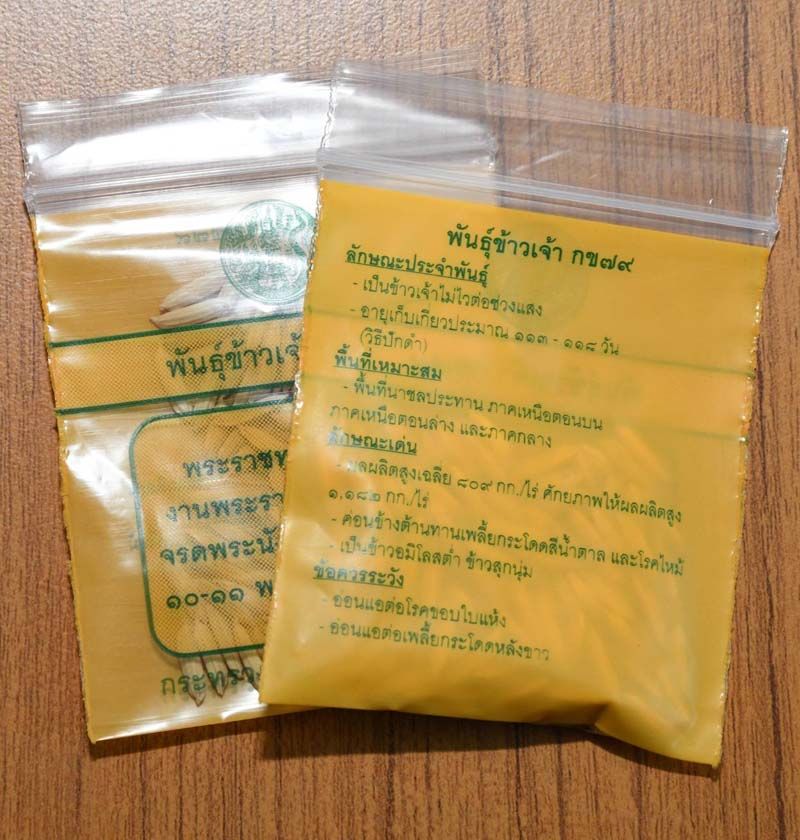 พันธุ์ข้าวเจ้า
พระราชท
งานพระรา
จรดพระนั
๑๐-๑๑ พ
กระทรว
พันธุ์ข้าวเจ้า กข๗๙
ลักษณะประจำพันธุ์
- เป็นข้าวเจ้าไม่ไวต่อช่วงแสง
- อายุเก็บเกี่ยวประมาณ ๑๑๓ - ๑๑๘ วัน
(วิธีปักดำ)
พื้นที่เหมาะสม
- พื้นที่นาชลประทาน ภาคเหนือตอนบน
ภาคเหนือตอนล่าง และภาคกลาง
ลักษณะเด่น
- ผลผลิตสูงเฉลี่ย ๘๐๙ กก./ไร่ ศักยภาพให้ผลผลิตสูง
๑,๑๘๒ กก./ไร่
- ค่อนข้างต้านทานเพลี้ยกระโดดสีน้ำตาล และโรคไหม้
- เป็นข้าวอมิโลสต่ำ ข้าวสุกนุ่ม
ข้อควรระวัง
- อ่อนแอต่อโรคขอบใบแห้ง
- อ่อนแอต่อเพลี้ยกระโดดหลังขาว